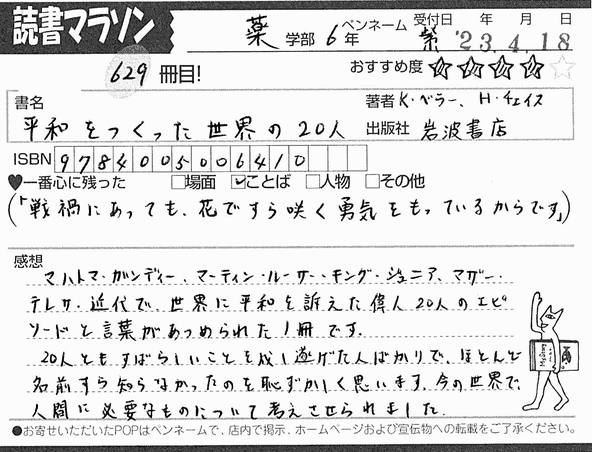 読書マラソン
薬 学部 6 年 ペンネーム 紫 受付日 年 月 日 '23.4.18
629 冊目! おすすめ度 ★★★★☆
書名 著者 K・ベラー、H・チェイス
平和をつくった世界の20人 出版社 岩波書店
ISBN 9784005006410
♥一番心に残った □場面 ☑ことば □人物 □その他
(「戦禍にあっても、花ですら咲く勇気をもっているからです」)
感想
マハトマ・ガンディー、マーティン・ルーサー・キング・ジュニア、マザー・
テレサ・近代で、世界に平和を訴えた偉人20人のエピ
ソードと言葉があつめられた1冊です。
20人ともすばらしいことを成し遂げた人ばかりで、ほとんど
名前すら知らなかったのを恥ずかしく思います。今の世界で、
人間に必要なものについて考えさせられました。
●お寄せいただいたPOPはペンネームで、店内で掲示、ホームページおよび宣伝物への転載をご了承ください。